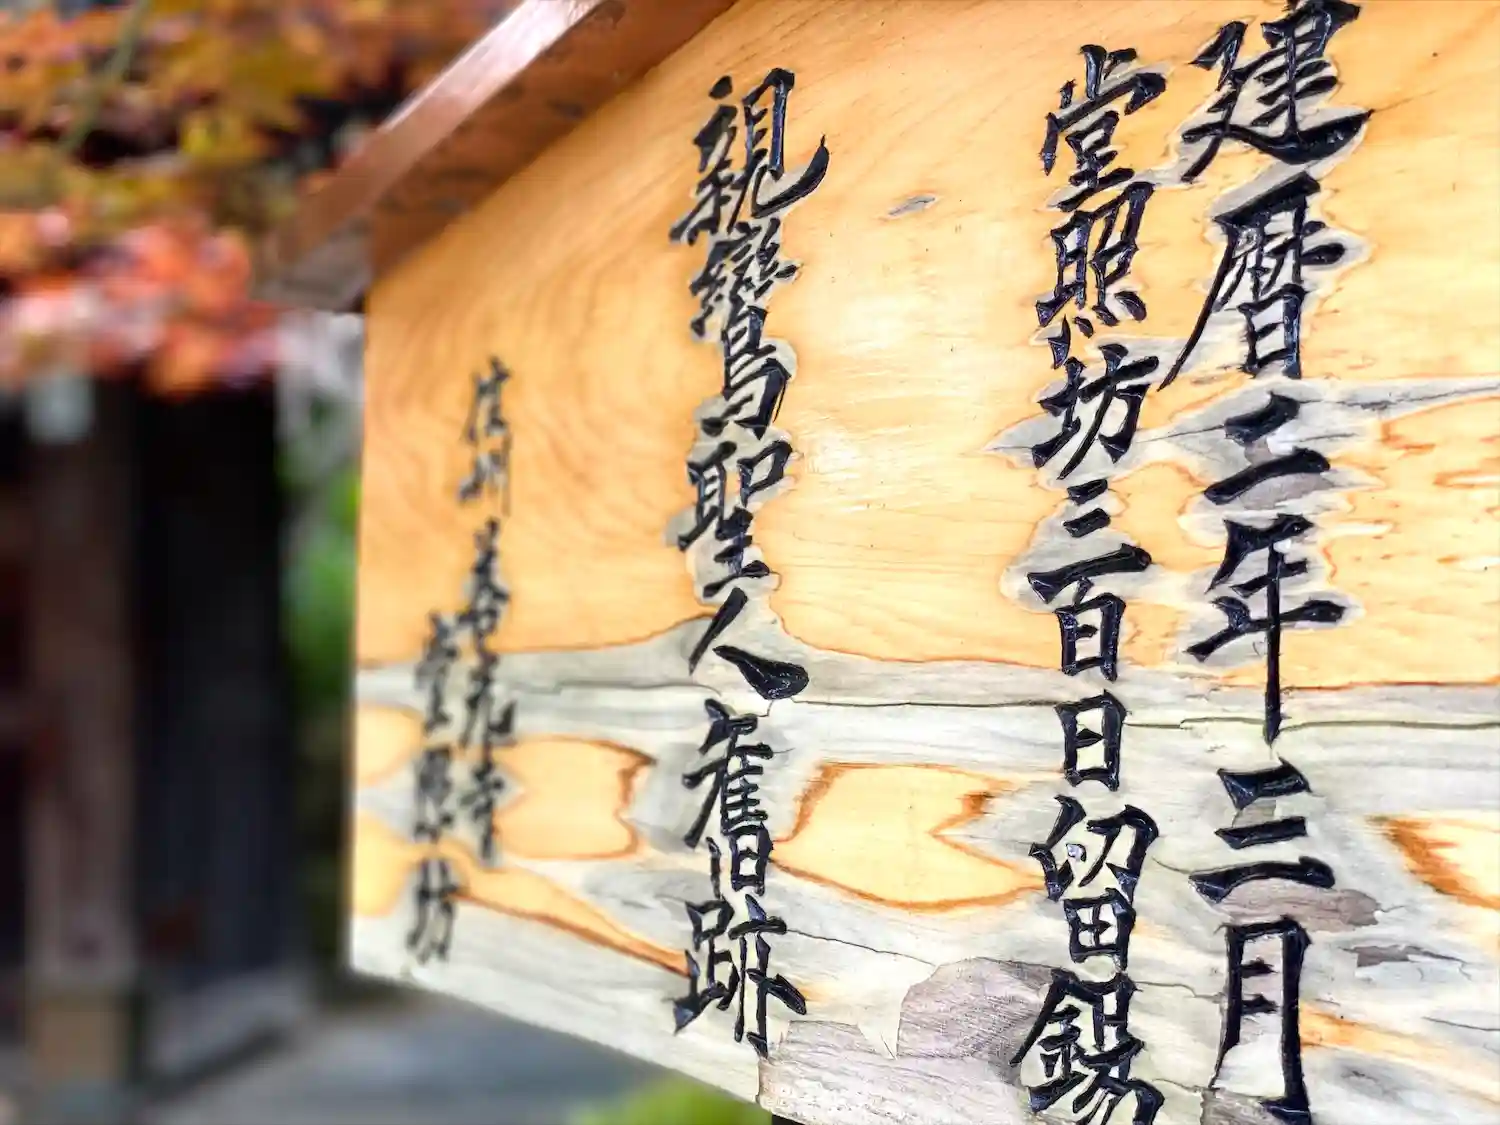 建暦二年三月
堂照坊三百日留錫
親鸞聖人舊跡
信州 善光寺
堂照坊